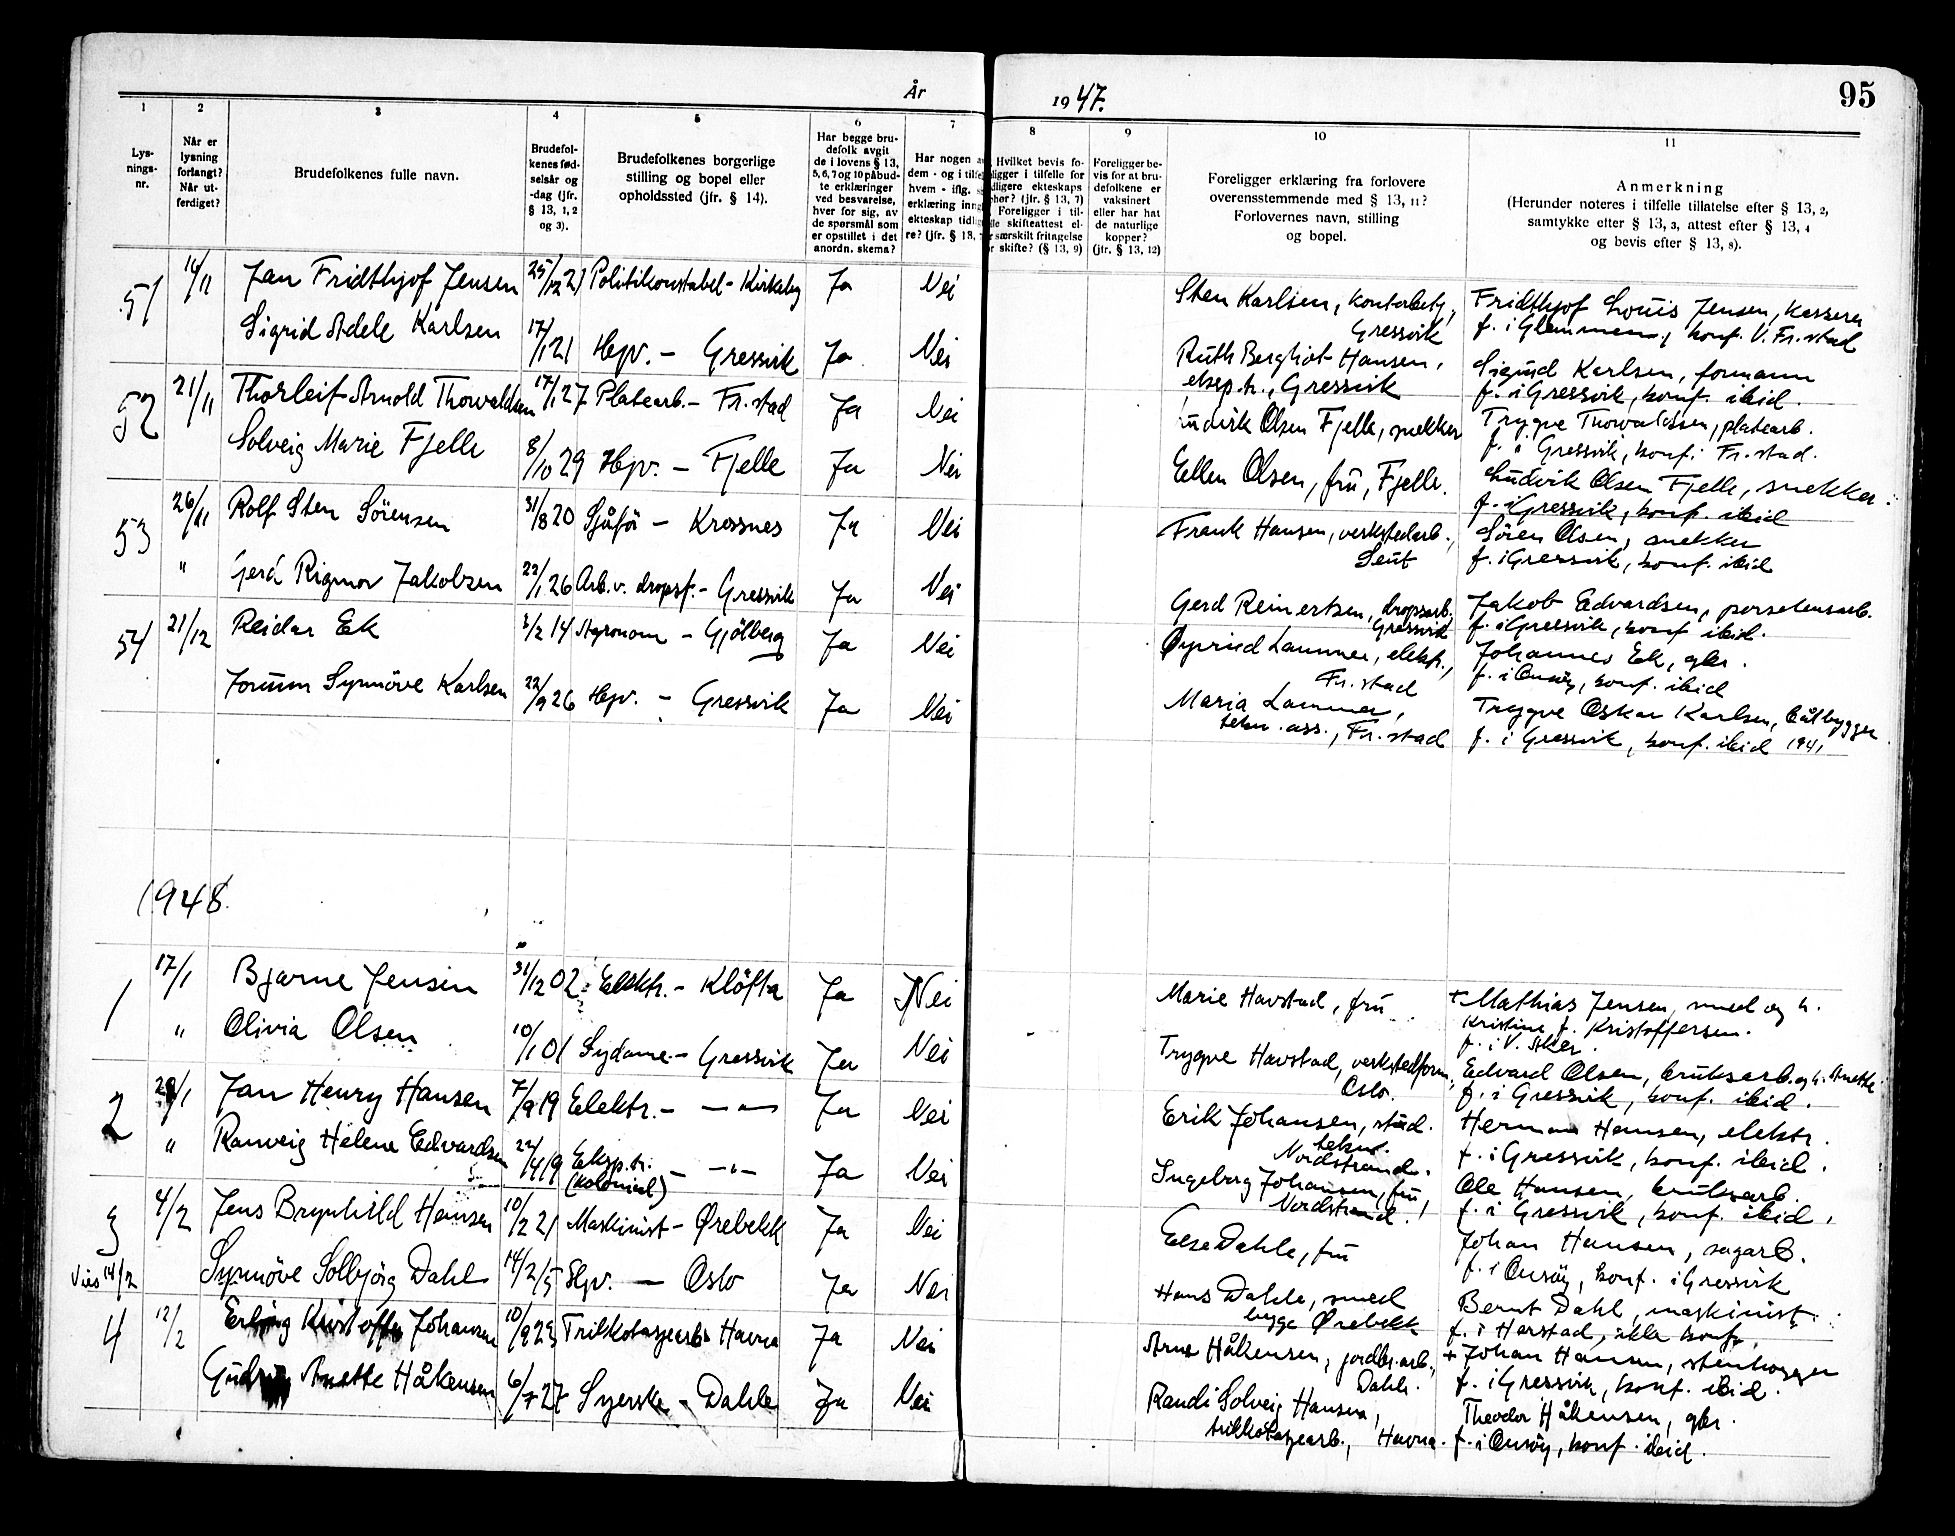 År 1947.
95
1 2 3 4 5 6 7 8 9 10 11
Lys-
nings-
nr.
Når er
lysning
forlangt?
Når ut-
ferdiget?
Brudefolkenes fulle navn.
Brudefol-
kenes fød-
selsår og
-dag (jfr.
§ 13, 1, 2
og 3).
Brudefolkenes borgerlige
stilling og bopel eller
opholdssted (jfr. § 14).
Har begge bru-
defolk avgit
de i lovens § 13,
5, 6, 7 og 10 påbud-
te erklæringer
ved besvarelse,
hver for sig, av
de spørsmål som
er opstillet i det
anordn. skema?
Har nogen
dem - og i
hvem - iflg.
erklæring
ekteskap
re? (jfr. § 13,
Hvilket bevis fo-
religger i tilfelle for
tidligere ekteskaps
ophør? (jfr. § 13, 7)
Foreligger i til-
felle skifteattest el-
ler særskilt fritagelse
for skifte? (§ 13, 9)
Foreligger be-
vis for at bru-
defolkene er
vaksinert
eller har hat
de naturlige
kopper?
(jfr. § 13, 12)
Foreligger erklæring fra forlovere
overensstemmende med § 13, 11?
Forlovernes navn, stilling
og bopel.
Anmerkning
(Herunder noteres i tilfelle tillatelse efter § 13, 2,
samtykke efter § 13, 3, attest efter § 13, 4
og bevis efter § 13, 8).
51 14/11 Jan Fridthjof Jensen 25/12 21 Politikonstabel - Kirkeby Ja Nei
Sigrid Adele Karlsen 17/1 21 Hpv. - Gressvik Ja Nei
Sten Karlsen, kontorbetj.,
Gressvik
Ruth Bergliot Hansen,
eksp.tr., Gressvik
Fridthjof Louis Jensen, kasserer
f. i Glemmen, konf. V. Fr.stad
Sigurd Karlsen, formann
f. i Gressvik, konf. ibid.
52 21/11 Thorleif Arnold Thorvaldsen 17/1 27 Platearb. - Fr.stad Ja Nei
Solveig Marie Fjelle 8/10 29 Hpv. - Fjelle Ja Nei
Ludvik Olsen Fjelle, snekker
Ellen Olsen, fru, Fjelle.
Trygve Thorvaldsen, platearb.
f. i Gressvik, konf. i Fr.stad.
Ludvik Olsen Fjelle, snekker
f. i Gressvik, konf. ibid
53 26/11 Rolf Sten Sörensen 31/8 20 Sjåfö - Kressnes Ja Nei
" Gerd Rigmor Jakobsen 22/1 26 Arb. v. dropsf. - Gressvik Ja Nei
Frank Hansen, verkstedarb.,
Leut
Gerd Reinertsen, dropsarb.
Gressvik
Sören Olsen, snekker
f. i Gressvik, konf. ibid
Jakob Edvardsen, porselensarb.
f. i Gressvik, konf. ibid.
54 21/12 Reidar Ek 2/2 14 Agronom - Gjölberg Ja Nei
Jorunn Synnöve Karlsen 22/9 26 Hpv. - Gressvik Ja Nei
Øyvind Lammer, elektr.,
Fr.stad
Maria Lammer,
tekn. ass., Fr.stad
Johannes Ek, gbr.
f. i Onsöy, konf. ibid
Trygve Oskar Karlsen, båtbygger
f. i Gressvik, konf. ibid 1941
1948.
1 17/1 Bjarne Jensen 31/12 02 Elektr. - Klöfta Ja Nei
" Olivia Olsen 10/1 01 Sydame - Gressvik Ja Nei
Marie Havstad, fru
Trygve Havstad, verkstedform,
Oslo.
+ Mathias Jensen, smed og h.
Kristine f. Kristoffersen.
f. i V. Aker.
Edvard Olsen, bruksarb. og h. Anette
f. i Gressvik, konf. ibid.
2 /1 Jan Henry Hansen 7/9 19 Elektr. - —"— Ja Nei
" Ranveig Helene Edvardsen 22/4 19 Eksp.tr. - —"— Ja Nei
(kolonial)
Erik Johansen, stud.
tekn.
Nordstrand.
Ingeborg Johansen, fru,
Nordstrand.
Herman Hansen, elektr.
f. i Gressvik, konf. ibid.
Ole Hansen, bruksarb.
f. i Gressvik, konf. ibid.
3 4/2 Jens Brynhild Hansen 10/2 21 Maskinist - Ørebekk Ja Nei
Vies 14/2 Synnöve Solbjörg Dahl 14/2 15 Hpv. — Oslo Ja Nei
Else Dahle, fru
Hans Dahle, smed
begge Ørebekk
Johan Hansen, sagarb.
f. i Onsöy, konf. i Gressvik
Bernt Dahl, maskinist
f. i Harstad, ikke konf.
4 12/2 Erling Kristoffer Johansen 10/9 23 Trikotasjearb. Havna Ja Nei
Gudrun Anette Håkensen 6/7 27 Syerske - Dahle Ja Nei
Arne Håkensen, jordbr.arb.,
Dahle.
Randi Solveig Hansen,
trikkotasjearb., Havna.
+ Johan Hansen, stenhogger
f. i Gressvik, konf. ibid.
Theodor Håkensen, gbr.
f. i Onsöy, konf. ibid.